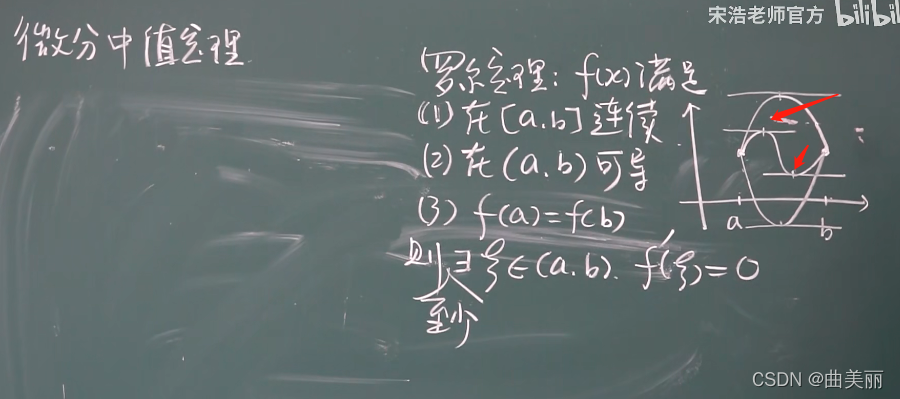 宋浩老师官方 bilibili
微分中值定理
罗尔定理: f(x)满足
(1) 在[a.b]连续
(2) 在(a.b)可导
(3) f(a)=f(b)
则∃ξ∈(a.b). f′(ξ)=0
至少
a b
CSDN @曲美丽